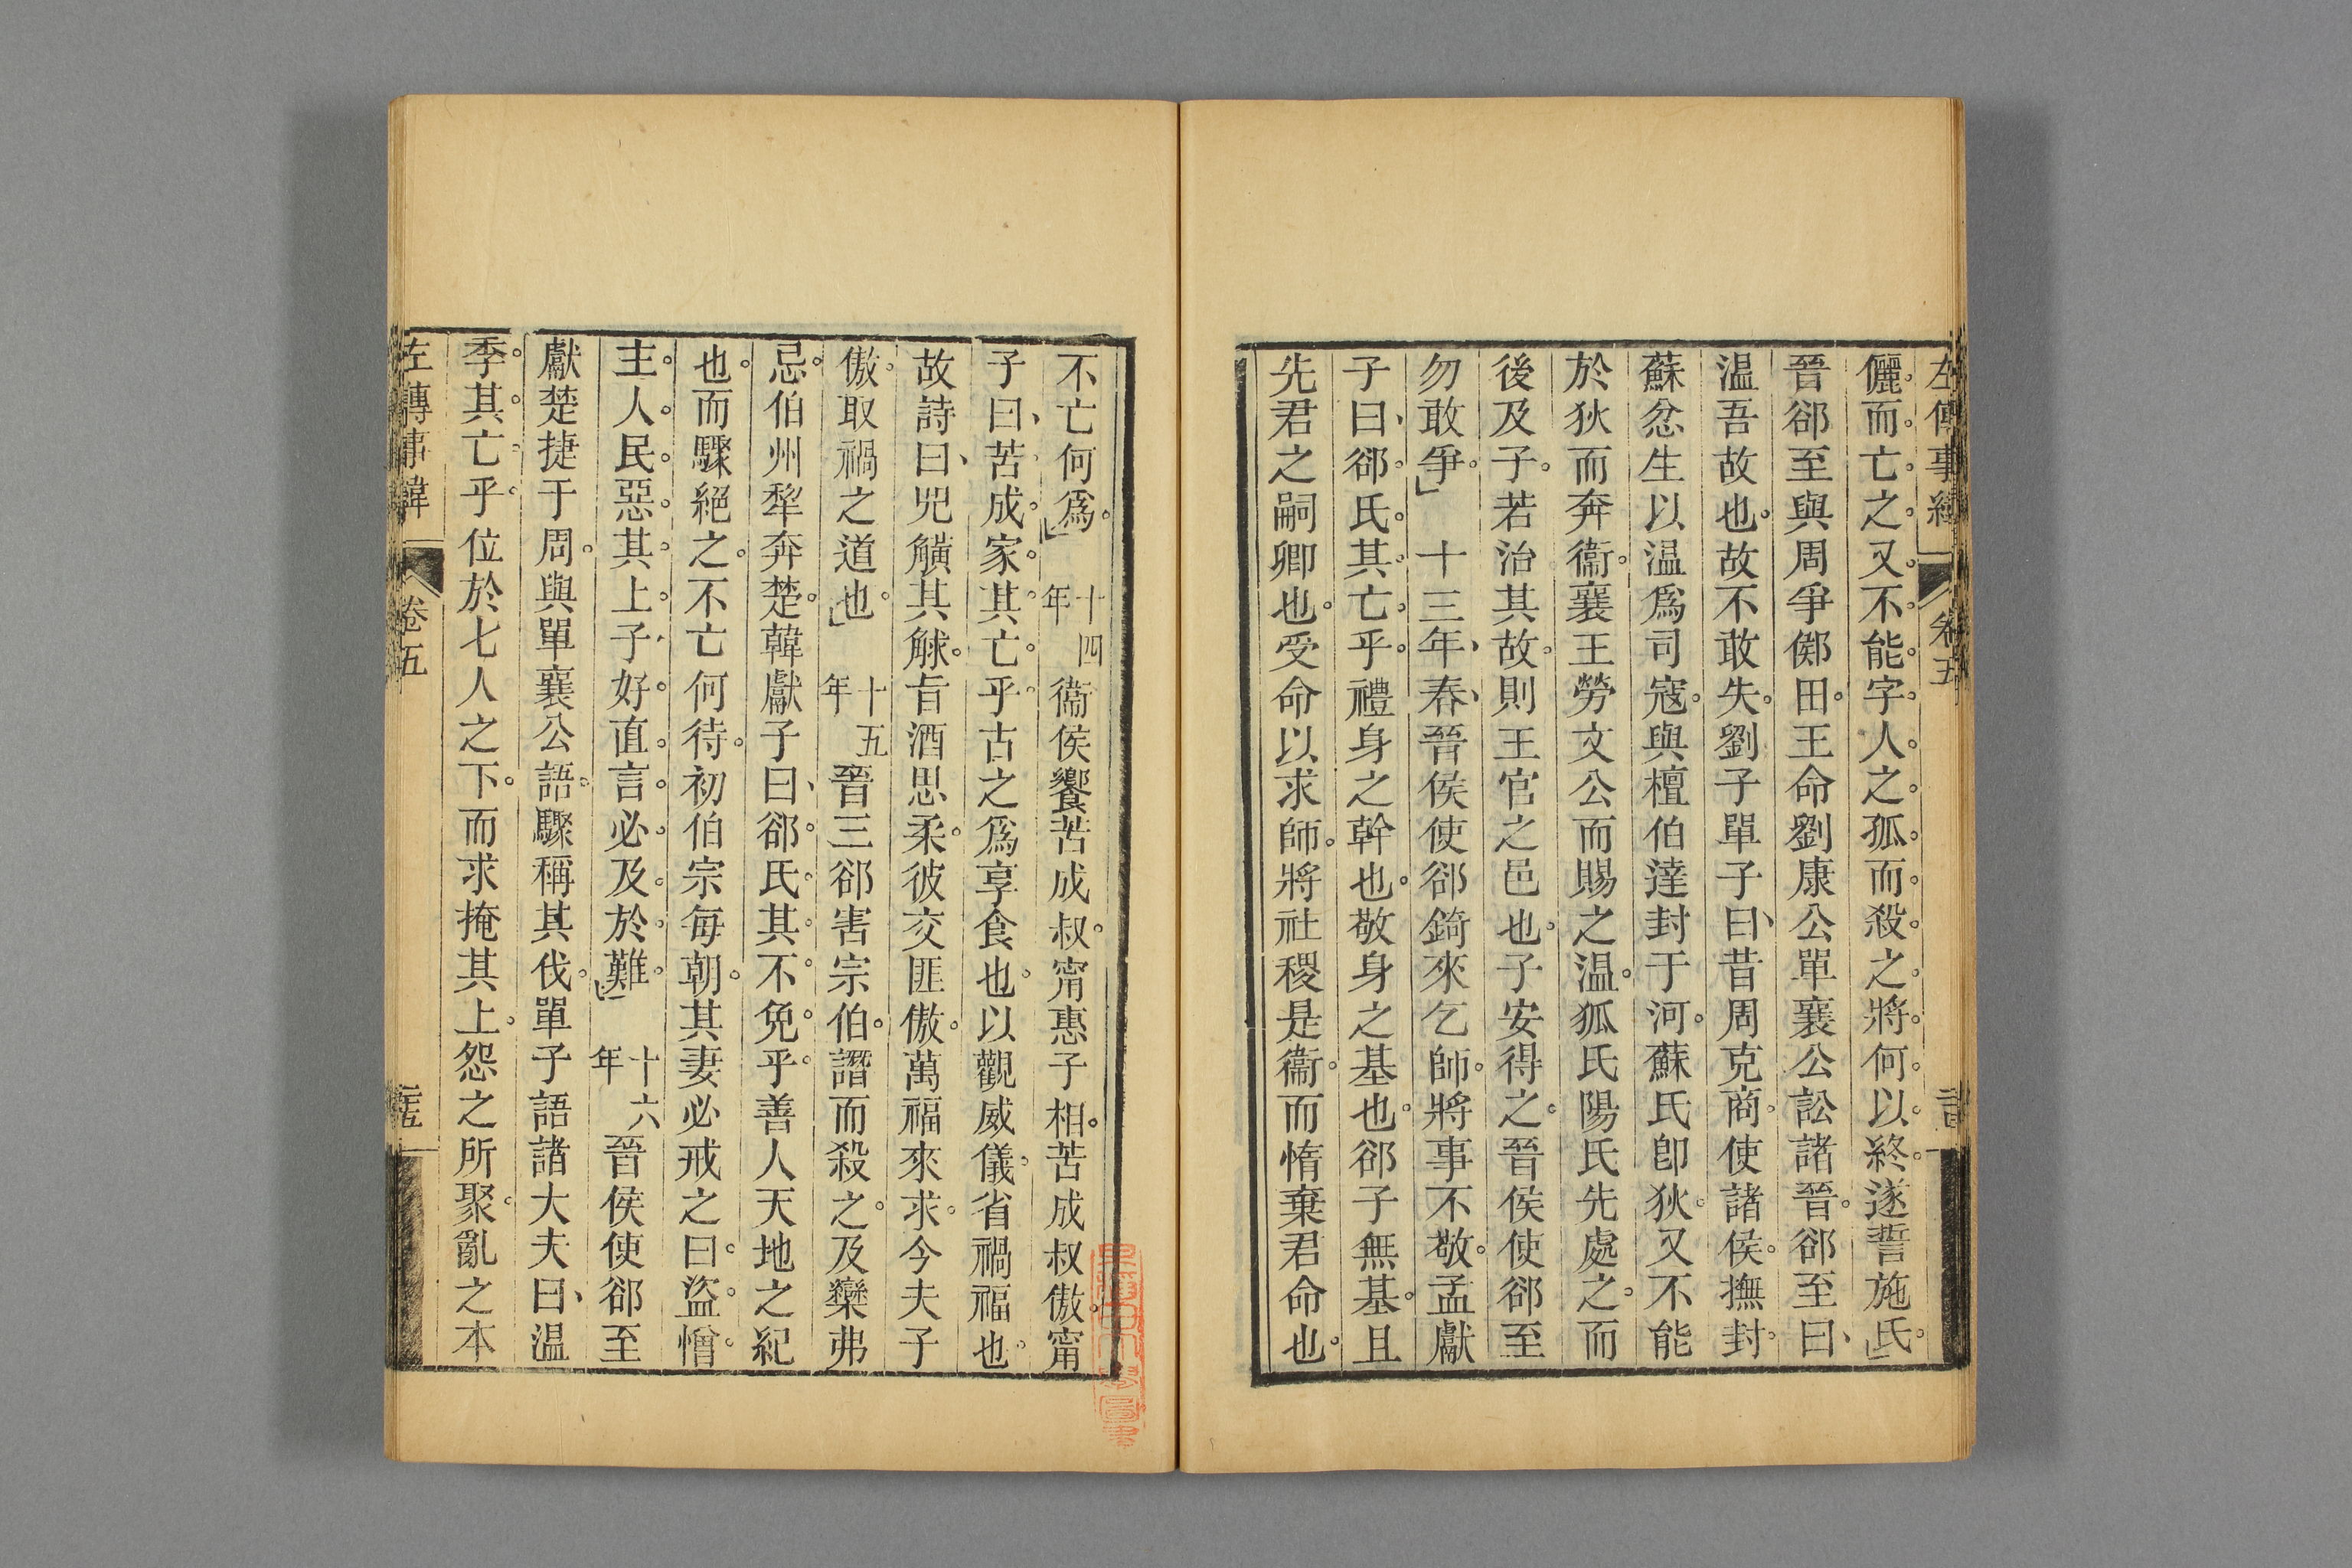 左傳事緯 卷五
儷而亡之又不能字人之孤而殺之將何以終遂誓施氏
晉郤至與周爭鄇田王命劉康公單襄公訟諸晉郤至曰
温吾故也故不敢失劉子單子曰昔周克商使諸侯撫封
蘇忿生以温爲司寇與檀伯達封于河蘇氏卽狄又不能
於狄而奔衞襄王勞文公而賜之温狐氏陽氏先處之而
後及子若治其故則王官之邑也子安得之晉侯使郤至
勿敢爭 十三年春晉侯使郤錡來乞師將事不敬孟獻
子曰郤氏其亡乎禮身之幹也敬身之基也郤子無基且
先君之嗣卿也受命以求師將社稷是衞而惰棄君命也
不亡何爲 十四年 衞侯饗苦成叔甯惠子相苦成叔傲甯
子曰苦成家其亡乎古之爲享食也以觀威儀省禍福也
故詩曰兕觵其觩旨酒思柔彼交匪傲萬福來求今夫子
傲取禍之道也 十五年 晉三郤害宗伯譖而殺之及欒弗
忌伯州犂奔楚韓獻子曰郤氏其不免乎善人天地之紀
也而驟絕之不亡何待初伯宗每朝其妻必戒之曰盜憎
主人民惡其上子好直言必及於難 十六年 晉侯使郤至
獻楚捷于周與單襄公語驟稱其伐單子語諸大夫曰温
季其亡乎位於七人之下而求掩其上怨之所聚亂之本
左傳事緯 卷五